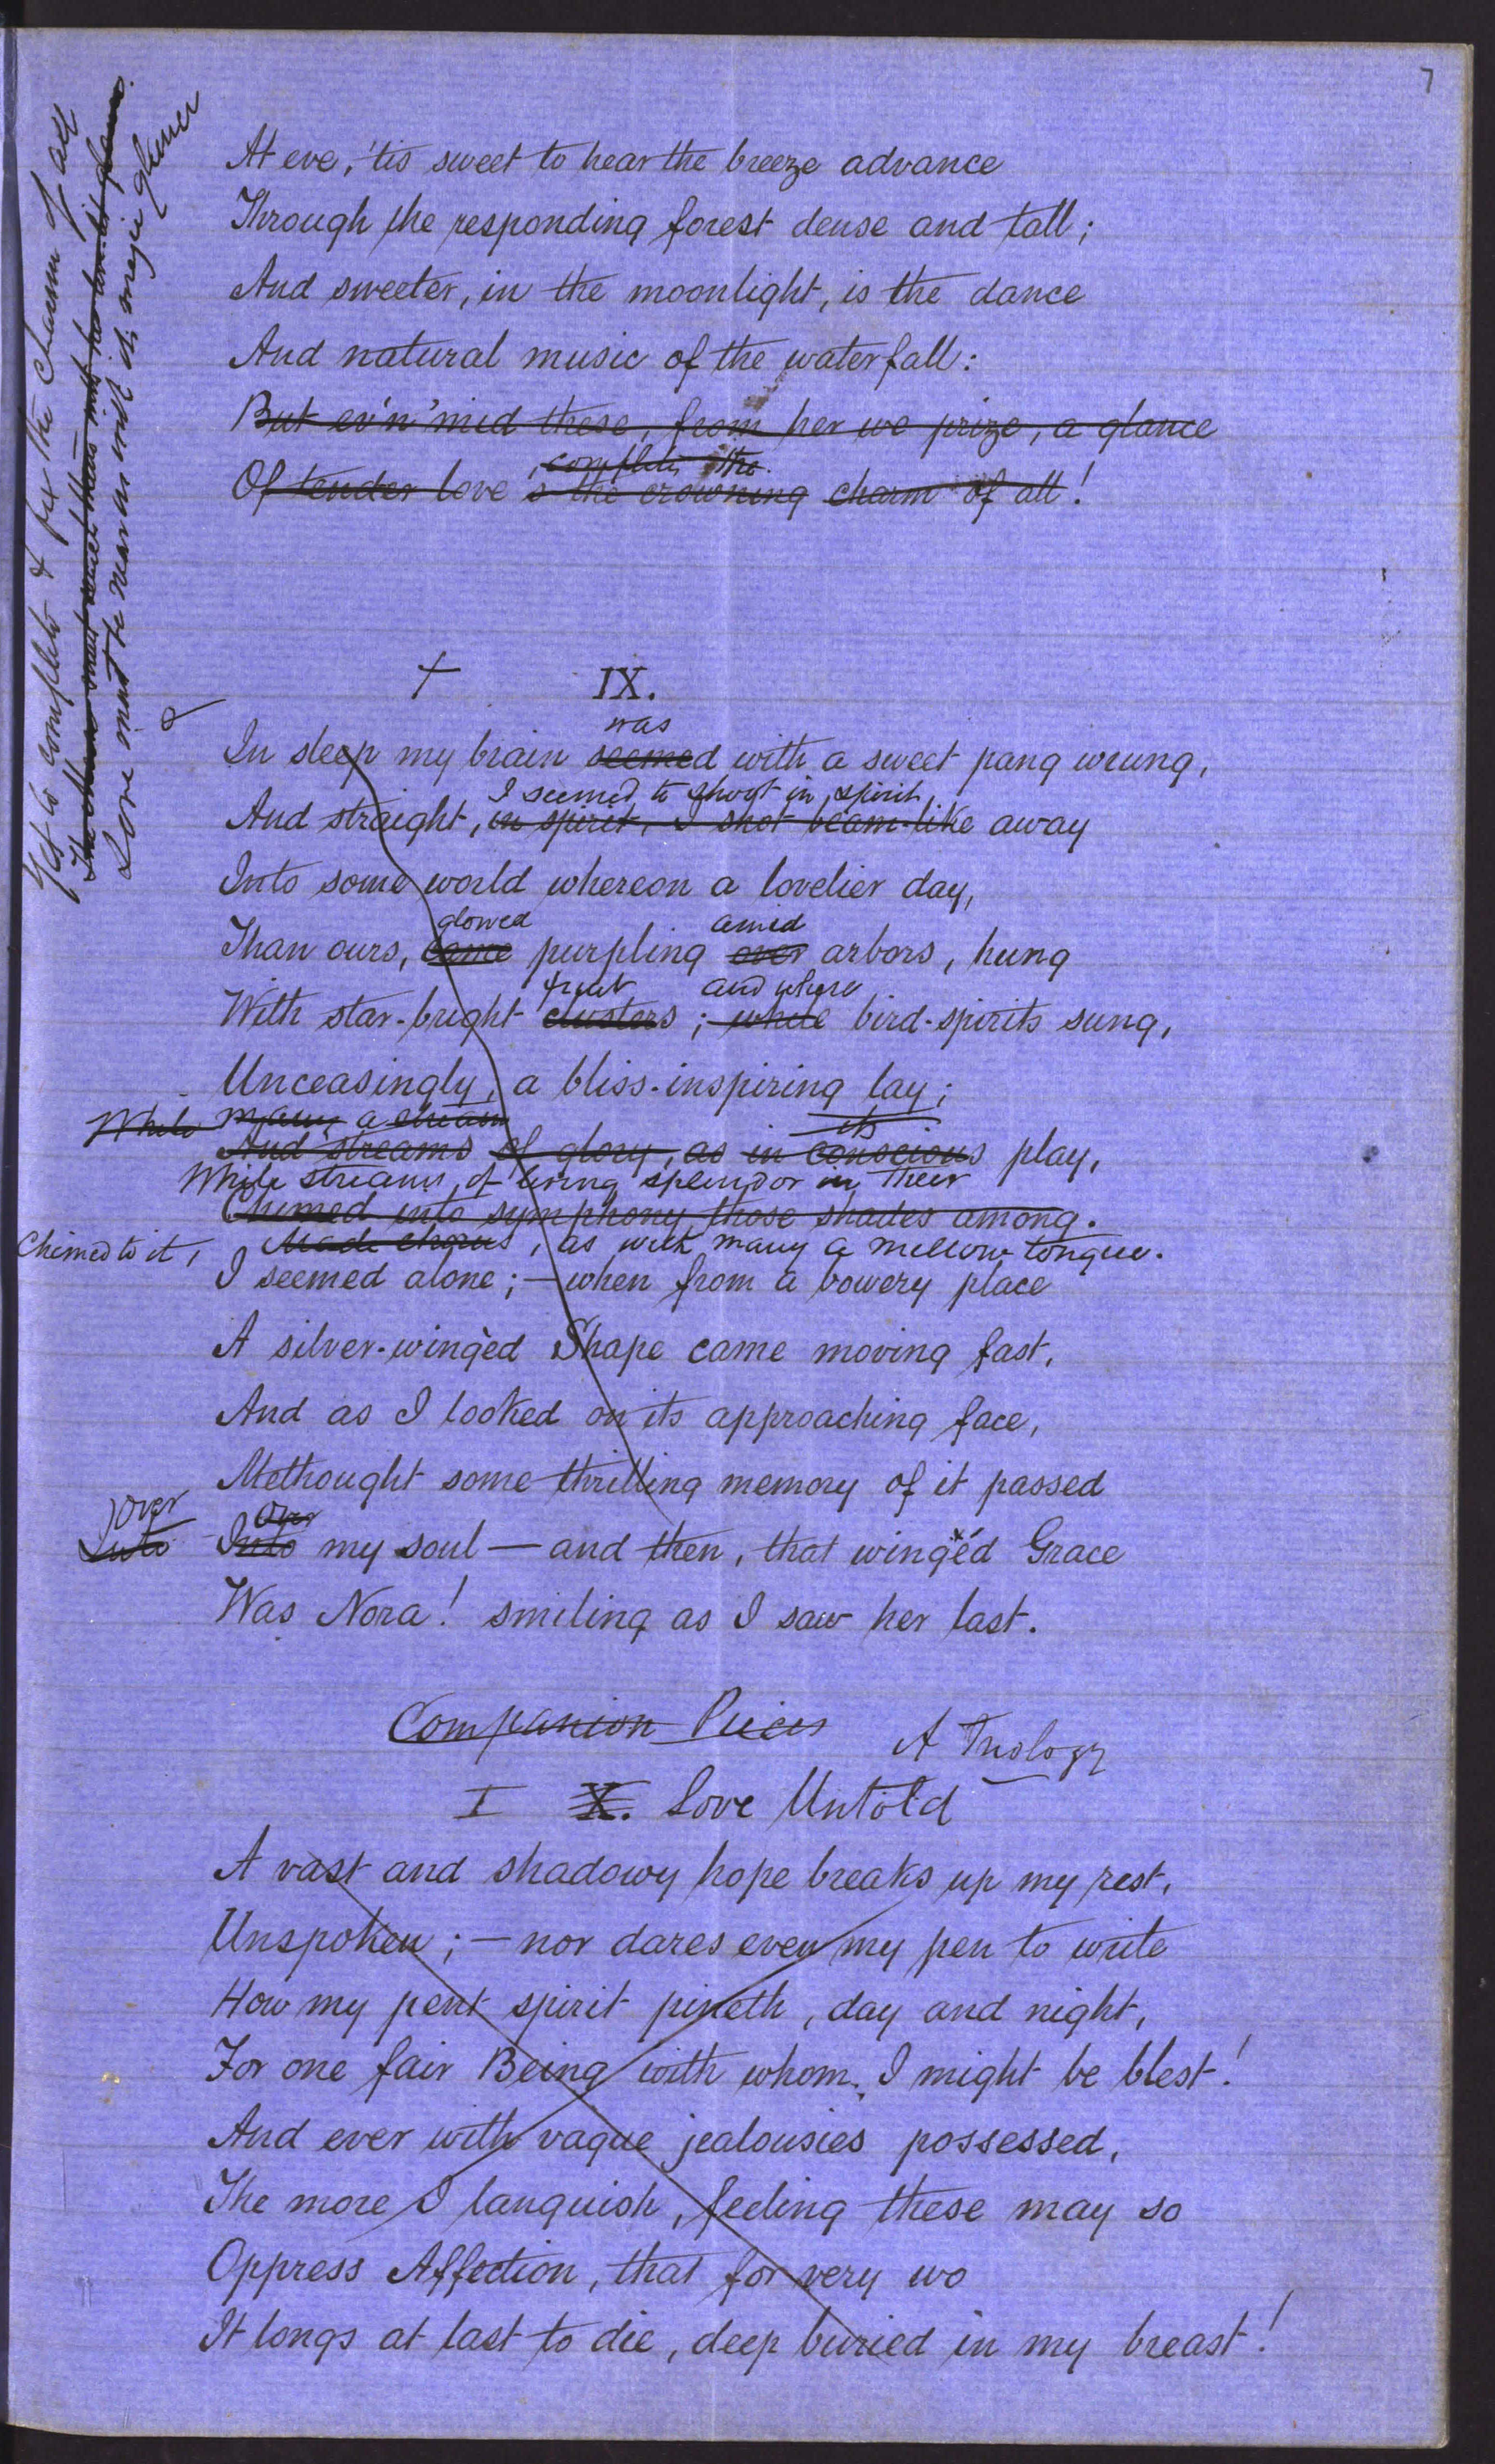 7
At eve, 'tis sweet to hear the breeze advance
Through the responding forest dense and tall;
And sweeter, in the moonlight, is the dance
And natural music of the waterfall:
But ev'n 'mid these, from her we prize, a glance
complete the
Of tender love s the crowning charm of all!
Yet to complete & fix the charm of all
Love must be near us with its magic glance
IX.
was
In sleep my brain seemed with a sweet pang wrung,
I seemed to shoot in spirit,
And straight, in spirit, I shot beam-like away
Into some world whereon a lovelier day,
glowed amid
Than ours, came purpling over arbors, hung
fruit and where
With star-bright clusters; while bird-spirits sung,
Unceasingly, a bliss-inspiring lay;
While many a stream its
And streams of glory, as in conscious play,
While streams, of living splendor in their
Chimed into symphony those shades among.
Chimed to it, Made chorus, as with many a mellow tongue.
I seemed alone;—when from a bowery place
A silver-wingèd Shape came moving fast,
And as I looked on its approaching face,
Methought some thrilling memory of it passed
Over Over
Into Into my soul—and then, that wingéd Grace
Was Nora! smiling as I saw her last.
Companion Pieces A Trilogy
I X. Love Untold
A vast and shadowy hope breaks up my rest,
Unspoken;—nor dares even my pen to write
How my pent spirit pineth, day and night,
For one fair Being with whom I might be blest!
And ever with vague jealousies possessed,
The more I languish, feeling these may so
Oppress Affection, that for very wo
It longs at last to die, deep buried in my breast!